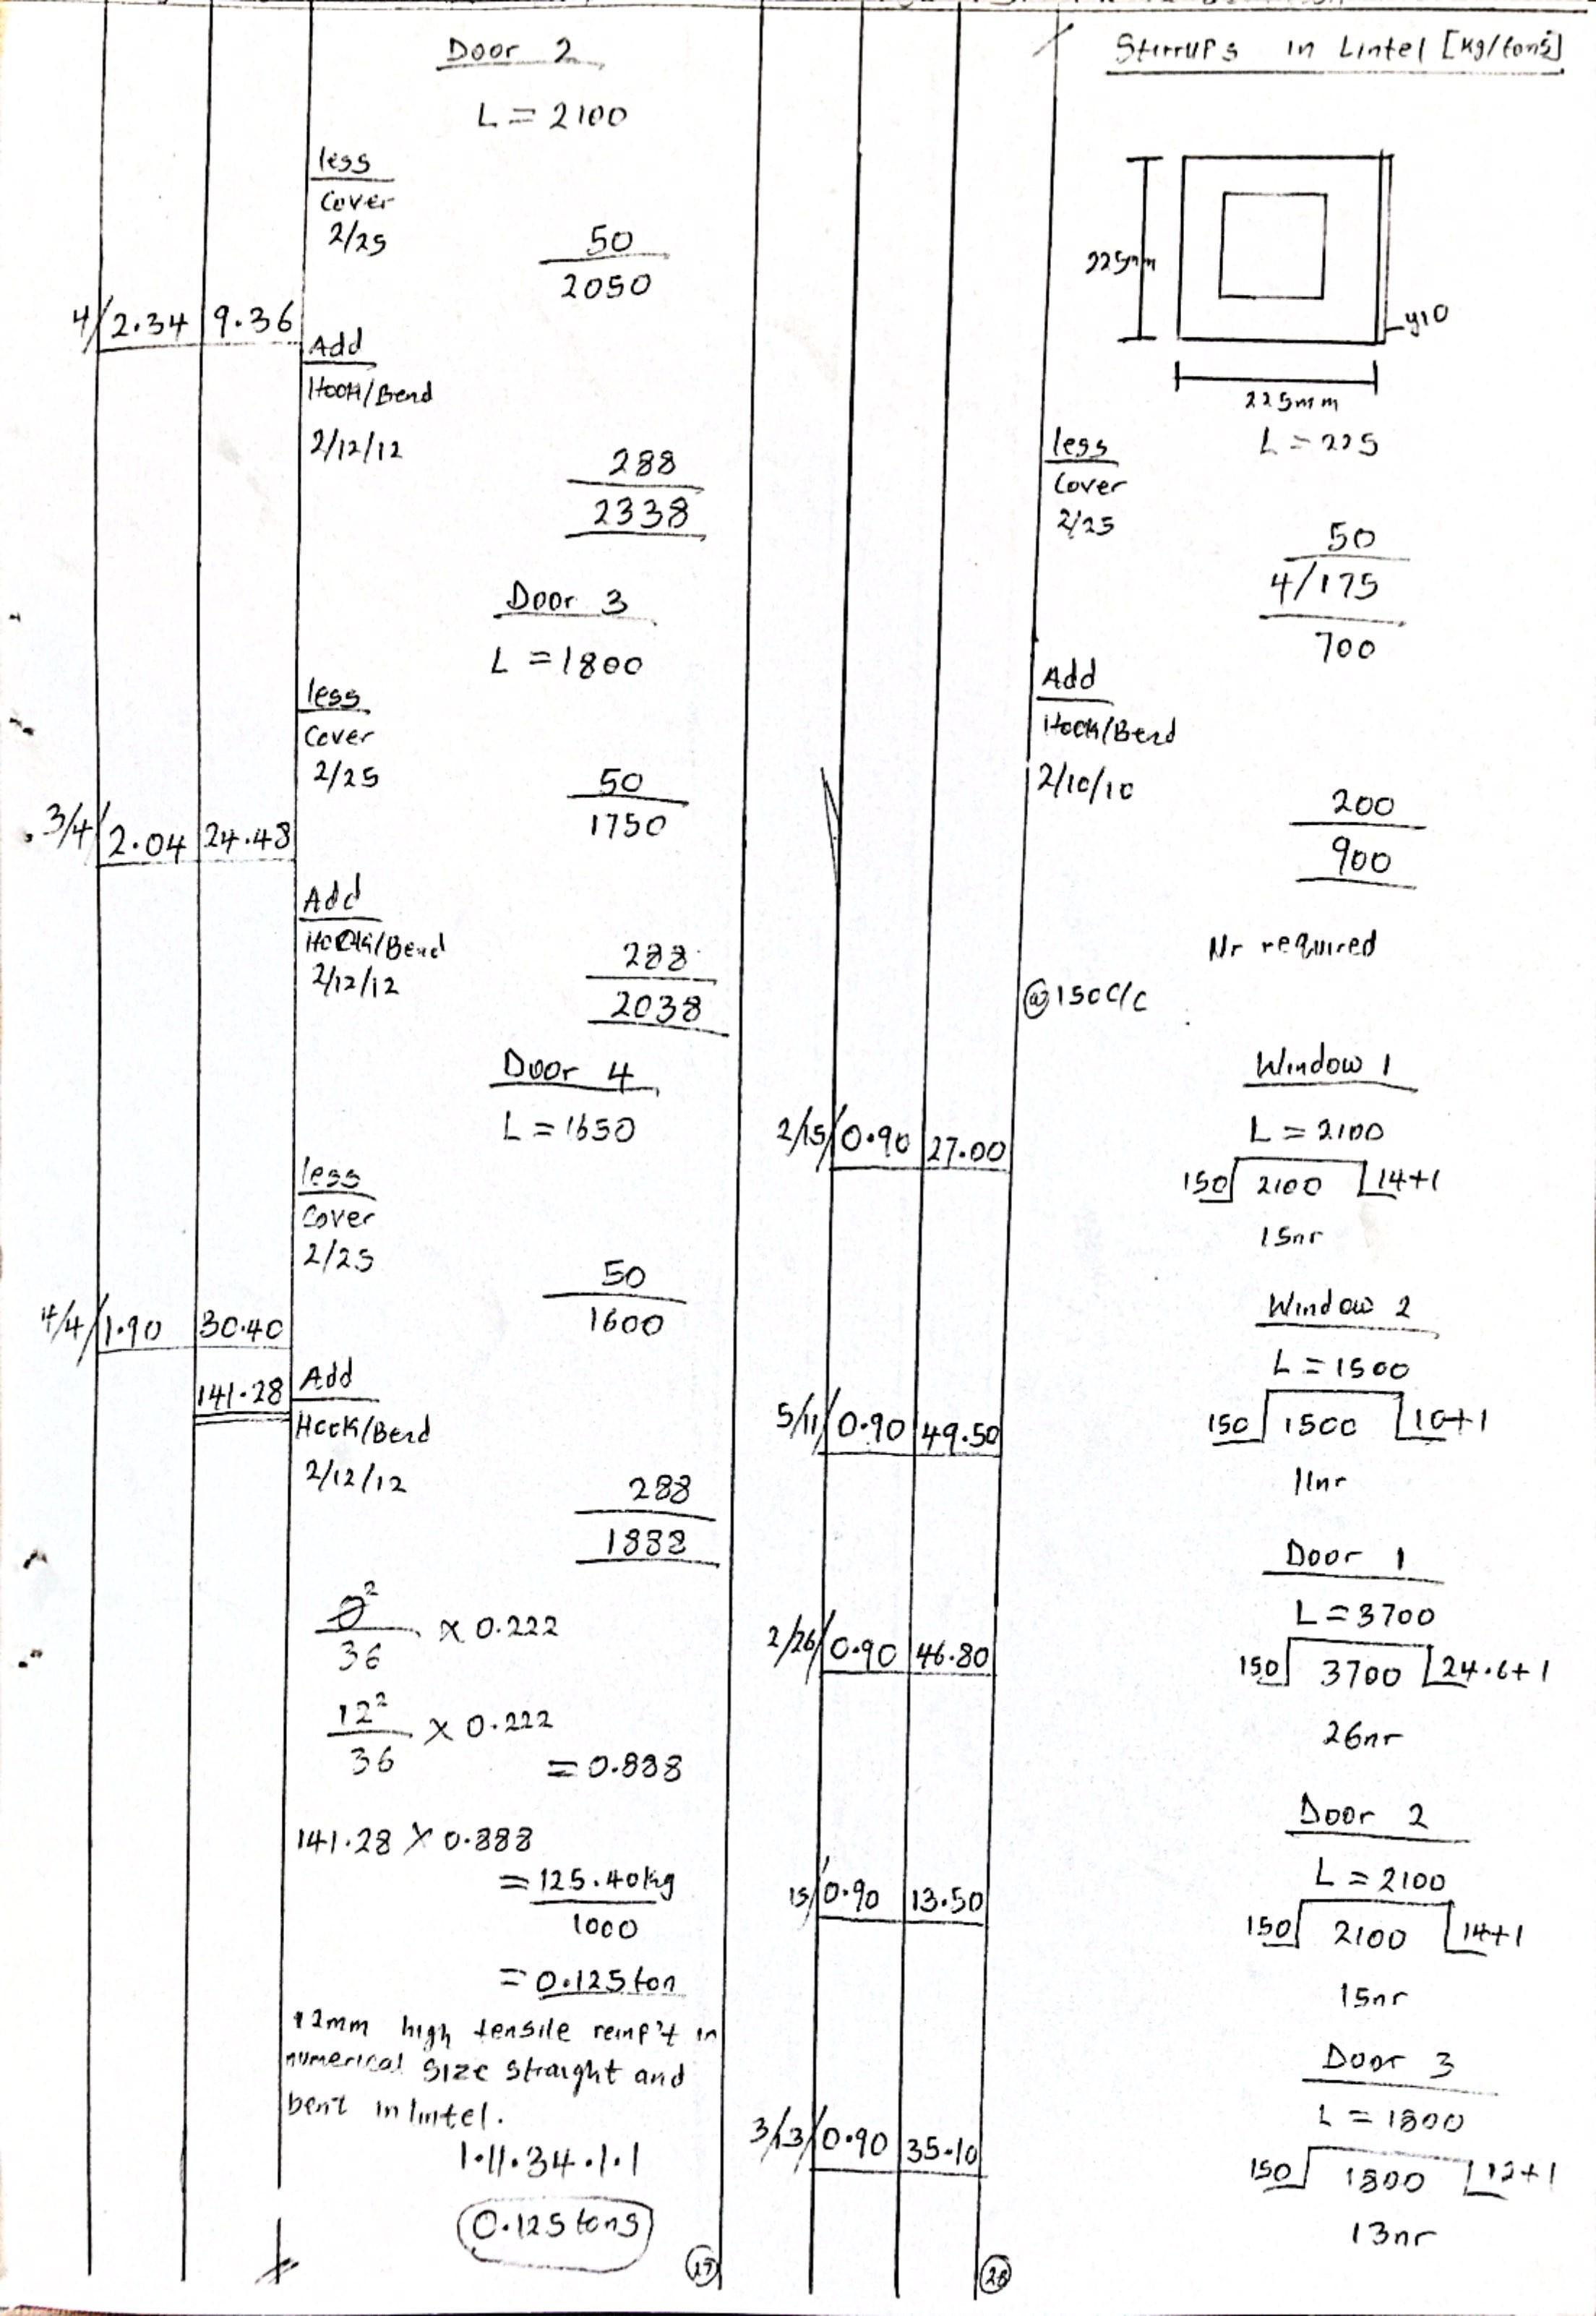 Door 2
L = 2100
less
Cover
2/25
50
2050
4/ 2.34 9.36
Add
Hook/Bend
2/12/12
288
2338
Door 3
L = 1800
less
Cover
2/25
50
1750
3/4/ 2.04 24.48
Add
Hook/Bend
2/12/12
288
2038
Door 4
L = 1650
less
Cover
2/25
50
1600
4/4/ 1.90 30.40
141.28
Add
Hook/Bend
2/12/12
288
1888
Ø²/36 × 0.222
12²/36 × 0.222
= 0.888
141.28 × 0.888
= 125.40kg
1000
= 0.125 ton
12mm high tensile reinf't in
numerical size straight and
bent in lintel.
1.11.34.1.1
0.125 tons
Stirrups in Lintel [kg/tons]
225mm
y10
225mm
L = 225
less
Cover
2/25
50
4/175
700
Add
Hook/Bend
2/10/10
200
900
Nr required
@150 c/c
Window 1
L = 2100
2/15/ 0.90 27.00
150 2100 14+1
15nr
Window 2
L = 1500
5/11/ 0.90 49.50
150 1500 10+1
11nr
Door 1
L = 3700
2/26/ 0.90 46.80
150 3700 24.6+1
26nr
Door 2
L = 2100
15/ 0.90 13.50
150 2100 14+1
15nr
Door 3
L = 1800
3/13/ 0.90 35.10
150 1800 12+1
13nr